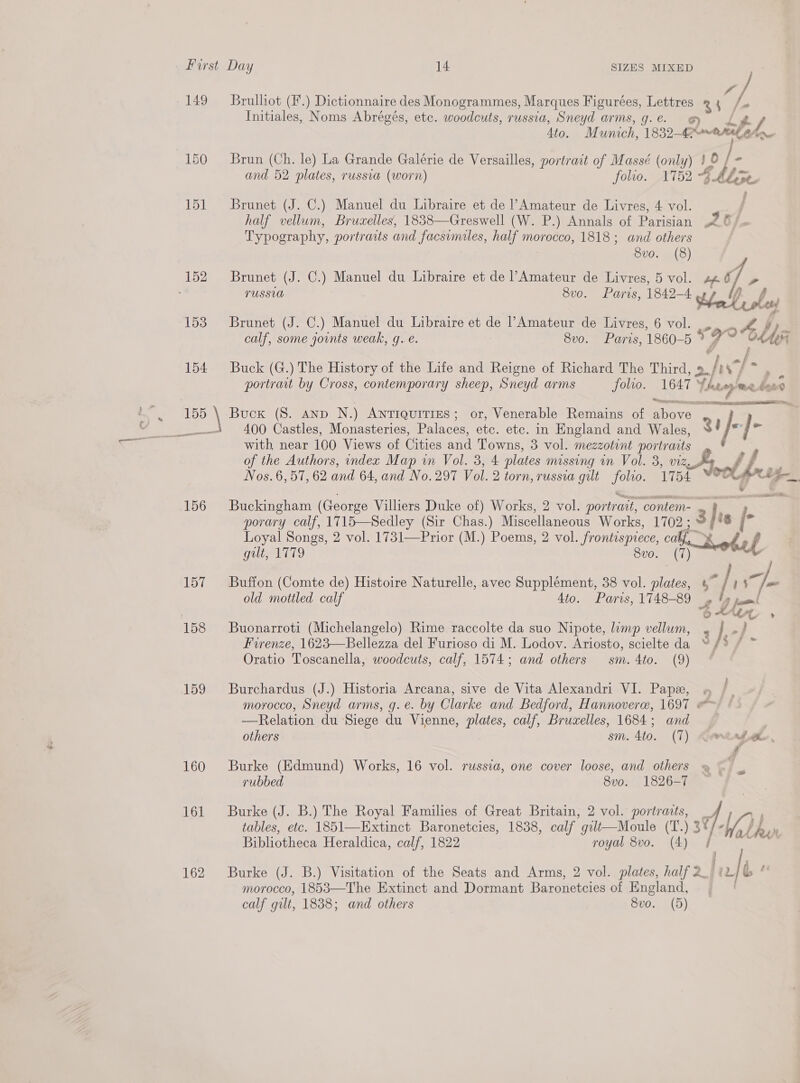 First Day 14 SIZES MIXED
149 Brulliot (F.) Dictionnaire des Monogrammes, Marques Figurées, Lettres
Initiales, Noms Abrégés, etc. woodcuts, russia, Sneyd arms, g. e.
4to. Munich, 1832-
150 Brun (Ch. le) La Grande Galérie de Versailles, portrait of Massé (only)
and 52 plates, russia (worn) folio. 1752
151 Brunet (J. C.) Manuel du Libraire et de l'Amateur de Livres, 4 vol.
half vellum, Bruxelles, 1838—Greswell (W. P.) Annals of Parisian
Typography, portraits and facsimiles, half morocco, 1818; and others
8vo. (8)
152 Brunet (J. C.) Manuel du Libraire et de l'Amateur de Livres, 5 vol.
russia 8vo. Paris, 1842-4
153 Brunet (J. C.) Manuel du Libraire et de l'Amateur de Livres, 6 vol.
calf, some joints weak, g. e. 8vo. Paris, 1860-5
154 Buck (G.) The History of the Life and Reigne of Richard The Third,
portrait by Cross, contemporary sheep, Sneyd arms folio. 1647
155 Buck (S. and N.) Antiquities; or, Venerable Remains of above
400 Castles, Monasteries, Palaces, etc. etc. in England and Wales,
with near 100 Views of Cities and Towns, 3 vol. mezzotint portraits
of the Authors, index Map in Vol. 3, 4 plates missing in Vol. 3, viz.
Nos. 6, 57, 62 and 64, and No. 297 Vol. 2 torn, russia gilt folio. 1754
156 Buckingham (George Villiers Duke of) Works, 2 vol. portrait, contem-
porary calf, 1715—Sedley (Sir Chas.) Miscellaneous Works, 1702;
Loyal Songs, 2 vol. 1731—Prior (M.) Poems, 2 vol. frontispiece, calf,
gilt, 1779 8vo. (7)
157 Buffon (Comte de) Histoire Naturelle, avec Supplément, 38 vol. plates,
old mottled calf 4to. Paris, 1748-89
158 Buonarroti (Michelangelo) Rime raccolte da suo Nipote, limp vellum,
Firenze, 1623—Bellezza del Furioso di M. Lodov. Ariosto, scielte da
Oratio Toscanella, woodcuts, calf, 1574; and others sm. 4to. (9)
159 Burchardus (J.) Historia Arcana, sive de Vita Alexandri VI. Papæ,
morocco, Sneyd arms, g. e. by Clarke and Bedford, Hannoveræ, 1697
—Relation du Siege du Vienne, plates, calf, Bruxelles, 1684; and
others sm. 4to. (7)
160 Burke (Edmund) Works, 16 vol. russia, one cover loose, and others
rubbed 8vo. 1826-7
161 Burke (J. B.) The Royal Families of Great Britain, 2 vol. portraits,
tables, etc. 1851—Extinct Baronetcies, 1838, calf gilt—Moule (T.)
Bibliotheca Heraldica, calf, 1822 royal 8vo. (4)
162 Burke (J. B.) Visitation of the Seats and Arms, 2 vol. plates, half
morocco, 1853—The Extinct and Dormant Baronetcies of England,
calf gilt, 1838; and others 8vo. (5)